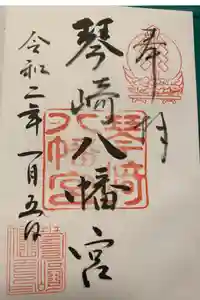 奉拝
琴崎八幡宮
琴崎
八幡宮
令和二年一月五日